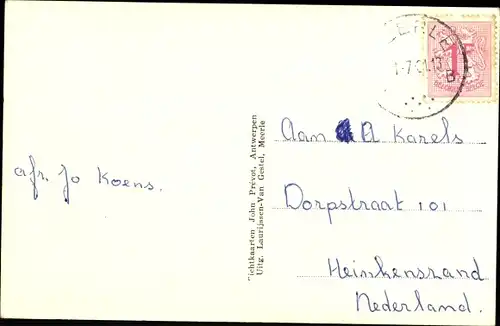 afz. Jo Koens.
Zichtkaarten John Prévot, Antwerpen
Uitg. Laurijssen-Van Gestel, Meerle
Aan A Karels
Dorpstraat 101
Heinkenszand
Nederland.